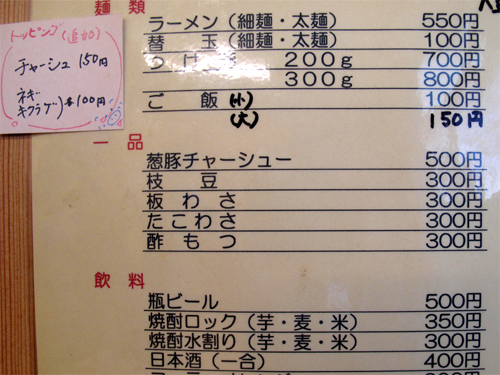 トッピング(追加)
チャーシュ 150円
ネギ
キクラゲ 100円
麺類
ラーメン(細麺・太麺) 550円
替玉(細麺・太麺) 100円
つけ 200g 700円
300g 800円
ご飯(小) 100円
(大) 150円
一品
葱豚チャーシュー 500円
枝豆 300円
板わさ 300円
たこわさ 300円
酢もつ 300円
飲料
瓶ビール 500円
焼酎ロック(芋・麦・米) 350円
焼酎水割り(芋・麦・米) 300円
日本酒(一合) 400円